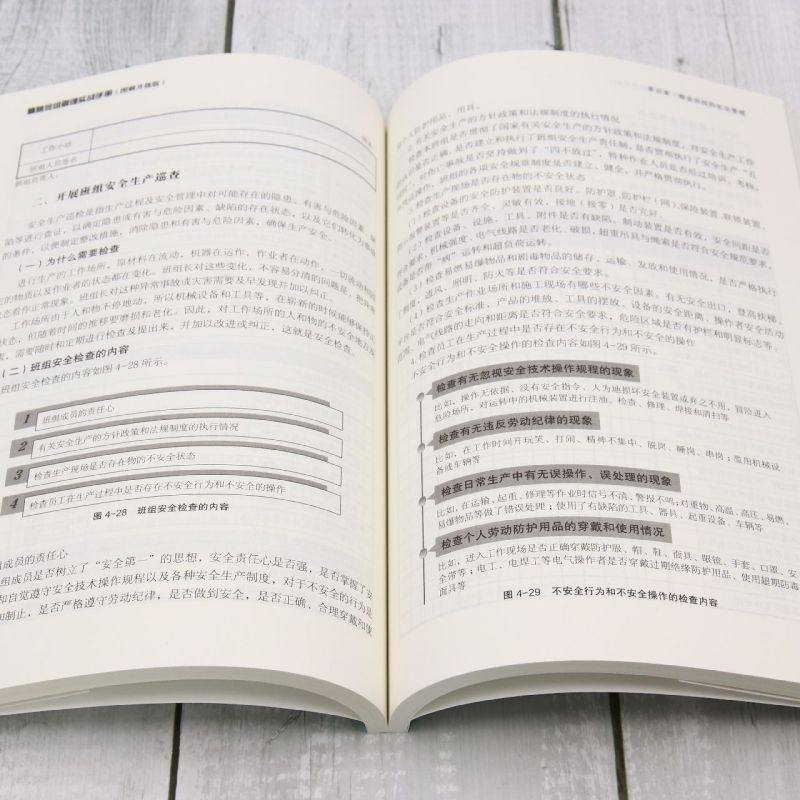 工作小结
班组人员签名
班组负责人：
二、开展班组安全生产巡查
安全生产巡检是指生产过程及安全管理中对可能存在的隐患、有害与危险因素、缺
陷等进行查证，以确定隐患或有害与危险因素、缺陷的存在状态，以及它们转化为事故
的条件，以便制定整改措施，消除隐患和有害与危险因素，确保生产安全。
（一）为什么需要检查
进行生产的工作场所，原材料在流动，机器在运作，作业者在动作，一切流动和
的物质以及作业者的状态都在变化。班组长对这些变化，不容易分清的问题是，把异常
态看作正常现象。班组长对这种异常事故或灾害需要及早发现并加以纠正。
工作场所由于人和物不停地动，所以机械设备和工具等，在崭新的时候能够保持正
状态，但随着时间的推移要磨损和老化。因此，对工作场所的人和物的不安全地方及
素，需要随时和定期进行检查及提出来，并加以改进或纠正，这就是安全检查。
（二）班组安全检查的内容
班组安全检查的内容如图4-28所示。
1 班组成员的责任心
2 有关安全生产的方针政策和法规制度的执行情况
3 检查生产现场是否存在物的不安全状态
4 检查员工在生产过程中是否存在不安全行为和不安全的操作
图 4-28 班组安全检查的内容
组成员的责任心
组成员是否树立了“安全第一”的思想，安全责任心是否强，是否掌握了安
和自觉遵守安全技术操作规程以及各种安全生产制度，对于不安全的行为是
和制止，是否严格遵守劳动纪律，是否做到安全，是否正确、合理穿戴和使
个人防护用品、用具。
2. 有关安全生产的方针政策和法规制度的执行情况
检查本班组是否贯彻了国家有关安全生产的方针政策和法规制度，对安全生产工作
是否正确，是否建立和执行了班组安全生产责任制，是否贯彻执行了安全生产“五
，对伤亡事故是否坚持做到了“四不放过”，特种作业人员是否经过培训、考核、
操作，班组的各项安全规章制度是否建立、健全，并严格贯彻执行。
3. 检查生产现场是否存在物的不安全状态
（1）检查设备的安全防护装置是否良好。防护罩、防护栏（网）、保险装置、联锁装置、
报警装置等是否齐全、灵敏有效，接地（接零）是否完好。
（2）检查设备、设施、工具、附件是否有缺陷。制动装置是否有效，安全间距是否
要求，机械强度、电气线路是否老化、破损，超重吊具与绳索是否符合安全规范要求，
是否带“病”运转和超负荷运转。
（3）检查易燃易爆物品和剧毒物品的储存、运输、发放和使用情况，是否严格执行
制度，通风、照明、防火等是否符合安全要求。
（4）检查生产作业场所和施工现场有哪些不安全因素。有无安全出口，登高扶梯、
是否符合安全标准，产品的堆放、工具的摆放、设备的安全距离、操作者安全活动
电气线路的走向和距离是否符合安全要求，危险区域是否有护栏和明显标志等。
4. 检查员工在生产过程中是否存在不安全行为和不安全的操作
不安全行为和不安全操作的检查内容如图4-29所示。
检查有无忽视安全技术操作规程的现象
比如，操作无依据、没有安全指令、人为地损坏安全装置或弃之不用，冒险进入
危险场所，对运转中的机械装置进行注油、检查、修理、焊接和清扫等
检查有无违反劳动纪律的现象
比如，在工作时间开玩笑、打闹、精神不集中、脱岗、睡岗、串岗；滥用机械设
备或车辆等
检查日常生产中有无误操作、误处理的现象
比如，在运输、起重、修理等作业时信号不清、警报不鸣；对重物、高温、高压、易燃、
易爆物品等做了错误处理；使用了有缺陷的工具、器具、起重设备、车辆等
检查个人劳动防护用品的穿戴和使用情况
比如，进入工作现场是否正确穿戴防护服、帽、鞋、面具、眼镜、手套、口罩、安
全带等；电工、电焊工等电气操作者是否穿戴过期绝缘防护用品、使用超期防毒
面具等
图 4-29 不安全行为和不安全操作的检查内容